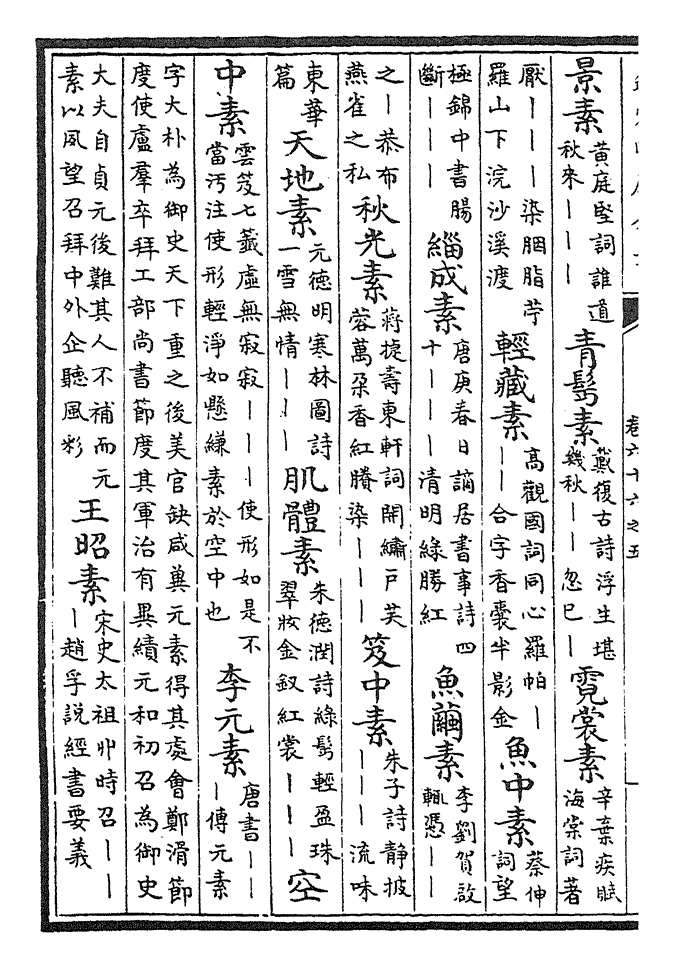 景素黃庭堅詞誰道秋來｜｜｜青鬂素戴復古詩浮生堪幾秋｜｜忽已｜霓裳素辛棄疾賦海棠詞著
厭｜｜｜染胭脂苧羅山下浣沙溪渡輕藏素高觀國詞同心羅帕｜｜｜合字香囊半影金魚中素蔡伸詞望
極錦中書腸斷｜｜｜緇成素唐庚春日謫居書事詩四十｜｜｜清明綠勝紅魚繭素李劉賀啟輒憑｜｜
之｜恭布燕雀之私秋光素蔣捷壽東軒詞開繡戶芙蓉萬朶香紅賸染｜｜｜笈中素朱子詩靜披｜｜｜流味
東華篇天地素元德明寒林圖詩一雪無情｜｜｜肌體素朱德潤詩綠鬂輕盈珠翠妝金釵紅裳｜｜｜空
中素雲笈七籤虛無寂寂｜｜｜使形如是不當汚注使形輕淨如懸縑素於空中也李元素唐書｜｜｜傳元素
字大朴為御史天下重之後美官缺咸冀元素得其處會鄭滑節度使盧羣卒拜工部尚書節度其軍治有異績元和初召為御史
大夫自貞元後難其人不補而元素以夙望召拜中外企聽風彩王昭素宋史太祖卽時召｜｜｜趙孚說經書要義
卷六十六之五